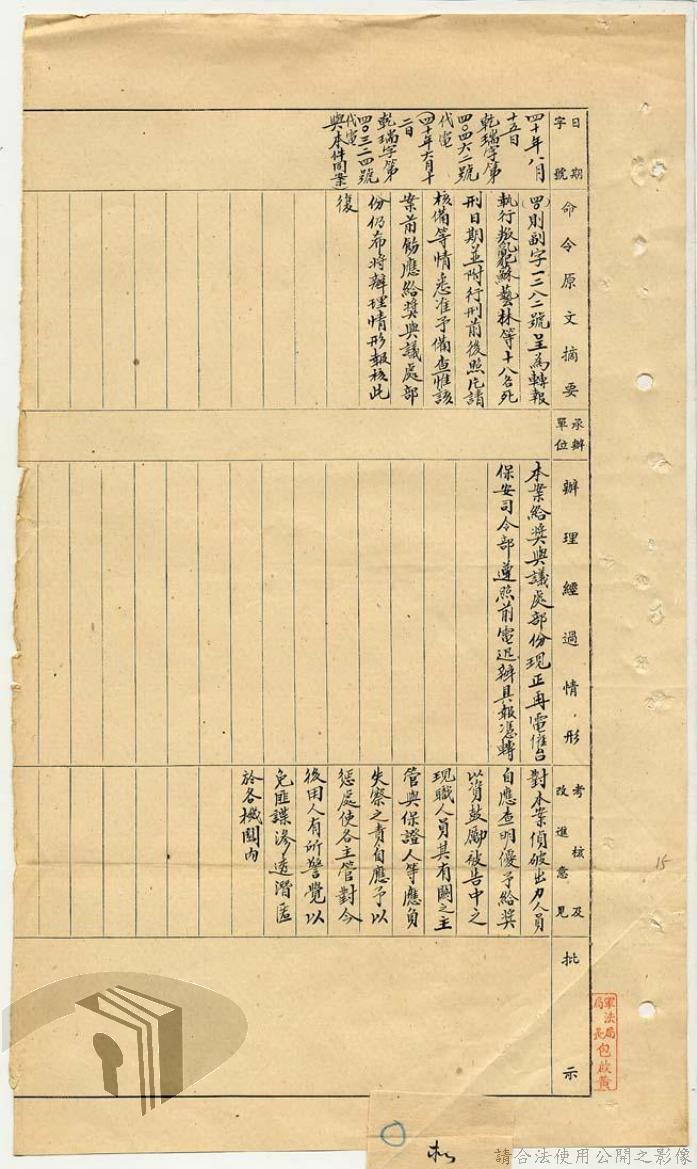 日期
字號
四十年八月
十五日
乾瑞字第
四〇四六二號
代電
(四十年六月十
二日
乾瑞字第
四〇三二四號
代電
與本件同案)
命令原文摘要
(四〇)則副字一二八二號呈為轉報
執行叛亂犯蘇藝林等十八名死
刑日期並附行刑前後照片請
核備等情悉准予備查惟該
案前飭應給獎與議處部
份仍希將辦理情形報核此
復
承辦
單位
辦理經過情形
本案給獎與議處部份現正再電催台
保安司令部遵照前電迅辦具報憑轉
考核及
改進意見
對本案偵破出力人員
自應查明優予給獎
以資鼓勵被告中之
現職人員其有關之主
管與保證人等應負
失察之責自應予以
懲處使各主管對今
後用人有所警覺以
免匪諜滲透潛匿
於各機關內
批示
軍法局
局長包啟黃
15
請合法使用公開之影像